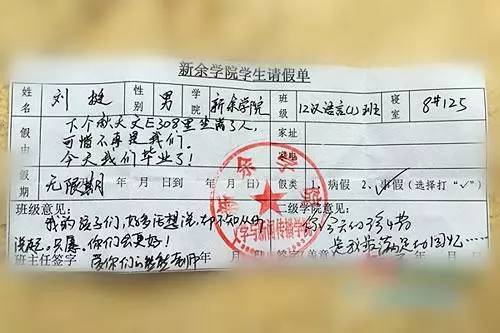 新余学院学生请假单
姓名 刘挺 性别 男 学院 新余学院 班级 12汉语言(1)班 寝室 8#125
假由 下个秋天文E308里坐满了人, 家址
可惜不再是我们。
今天我们毕业了!
假期 无限期 年 月 日到 年 月 日 假类 1.病假 2.事假(选择打“✓”)
班级意见: 二级学院意见:
我的孩子们,好多话想说,却不知从何
说起。只愿你们会更好! 你们今天的
爱你们的 老师 是我最满足的回忆……
班主任签字 年 月 日 签字(盖章) 年 月 日
新余学院
文学与新闻传播学院